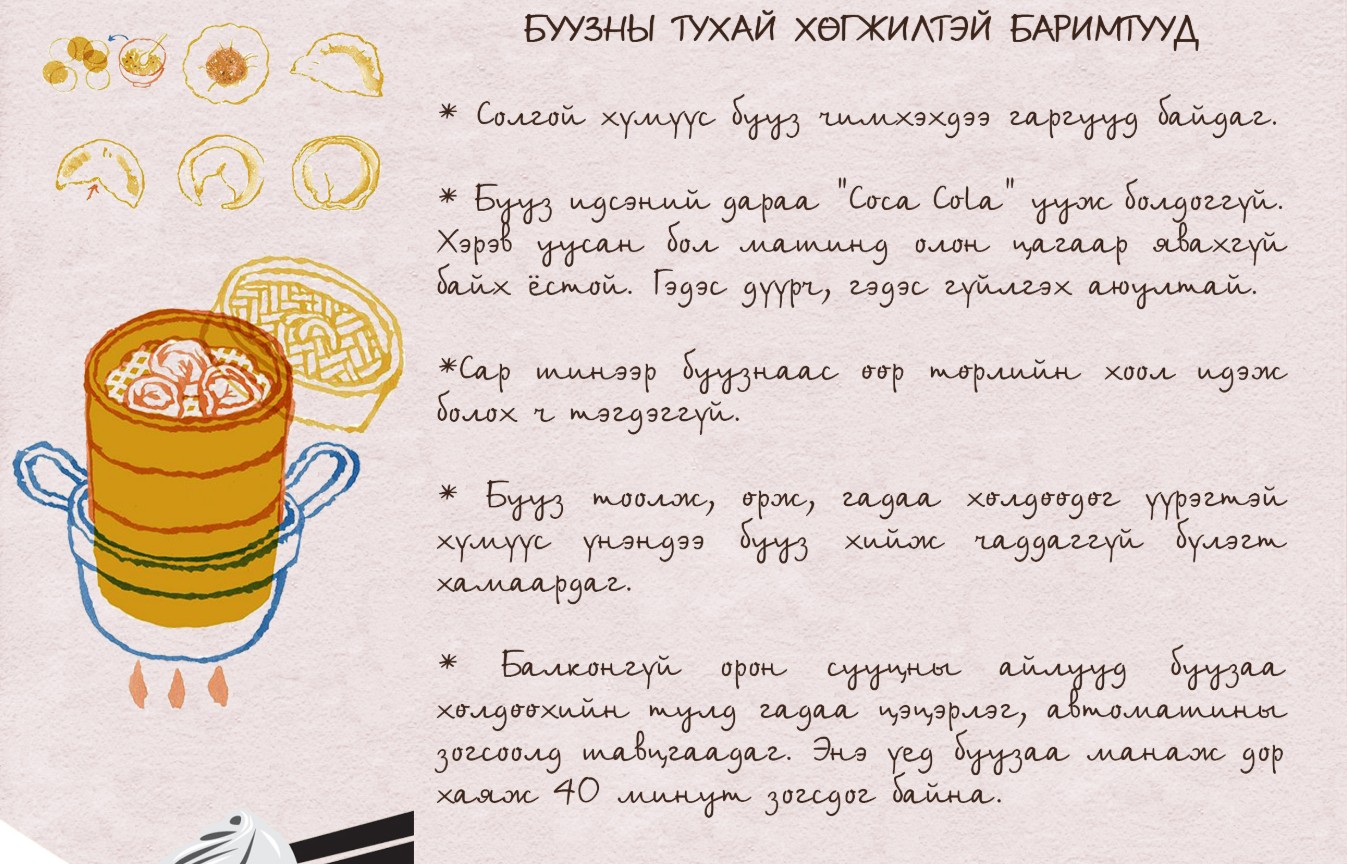 БУУЗНЫ ТУХАЙ ХӨГЖИЛТЭЙ БАРИМТУУД
* Солгой хүмүүс бууз чимхэхдээ гаргууд байдаг.
* Бууз идсэний дараа "Coca Cola" ууж болдоггүй.
Хэрэв уусан бол машинд олон цагаар явахгүй
байх ёстой. Гэдэс дүүрч, гэдэс гүйлгэх аюултай.
*Сар шинээр буузнаас өөр төрлийн хоол идэж
болох ч тэгдэггүй.
* Бууз тоолж, өрж, гадаа хөлдөөдөг үүрэгтэй
хүмүүс үнэндээ бууз хийж чаддаггүй бүлэгт
хамаардаг.
* Балконгүй орон сууцны айлууд буузаа
хөлдөөхийн тулд гадаа цэцэрлэг, автомашины
зогсоолд тавцгаадаг. Энэ үед буузаа манаж дор
хаяж 40 минут зогсдог байна.